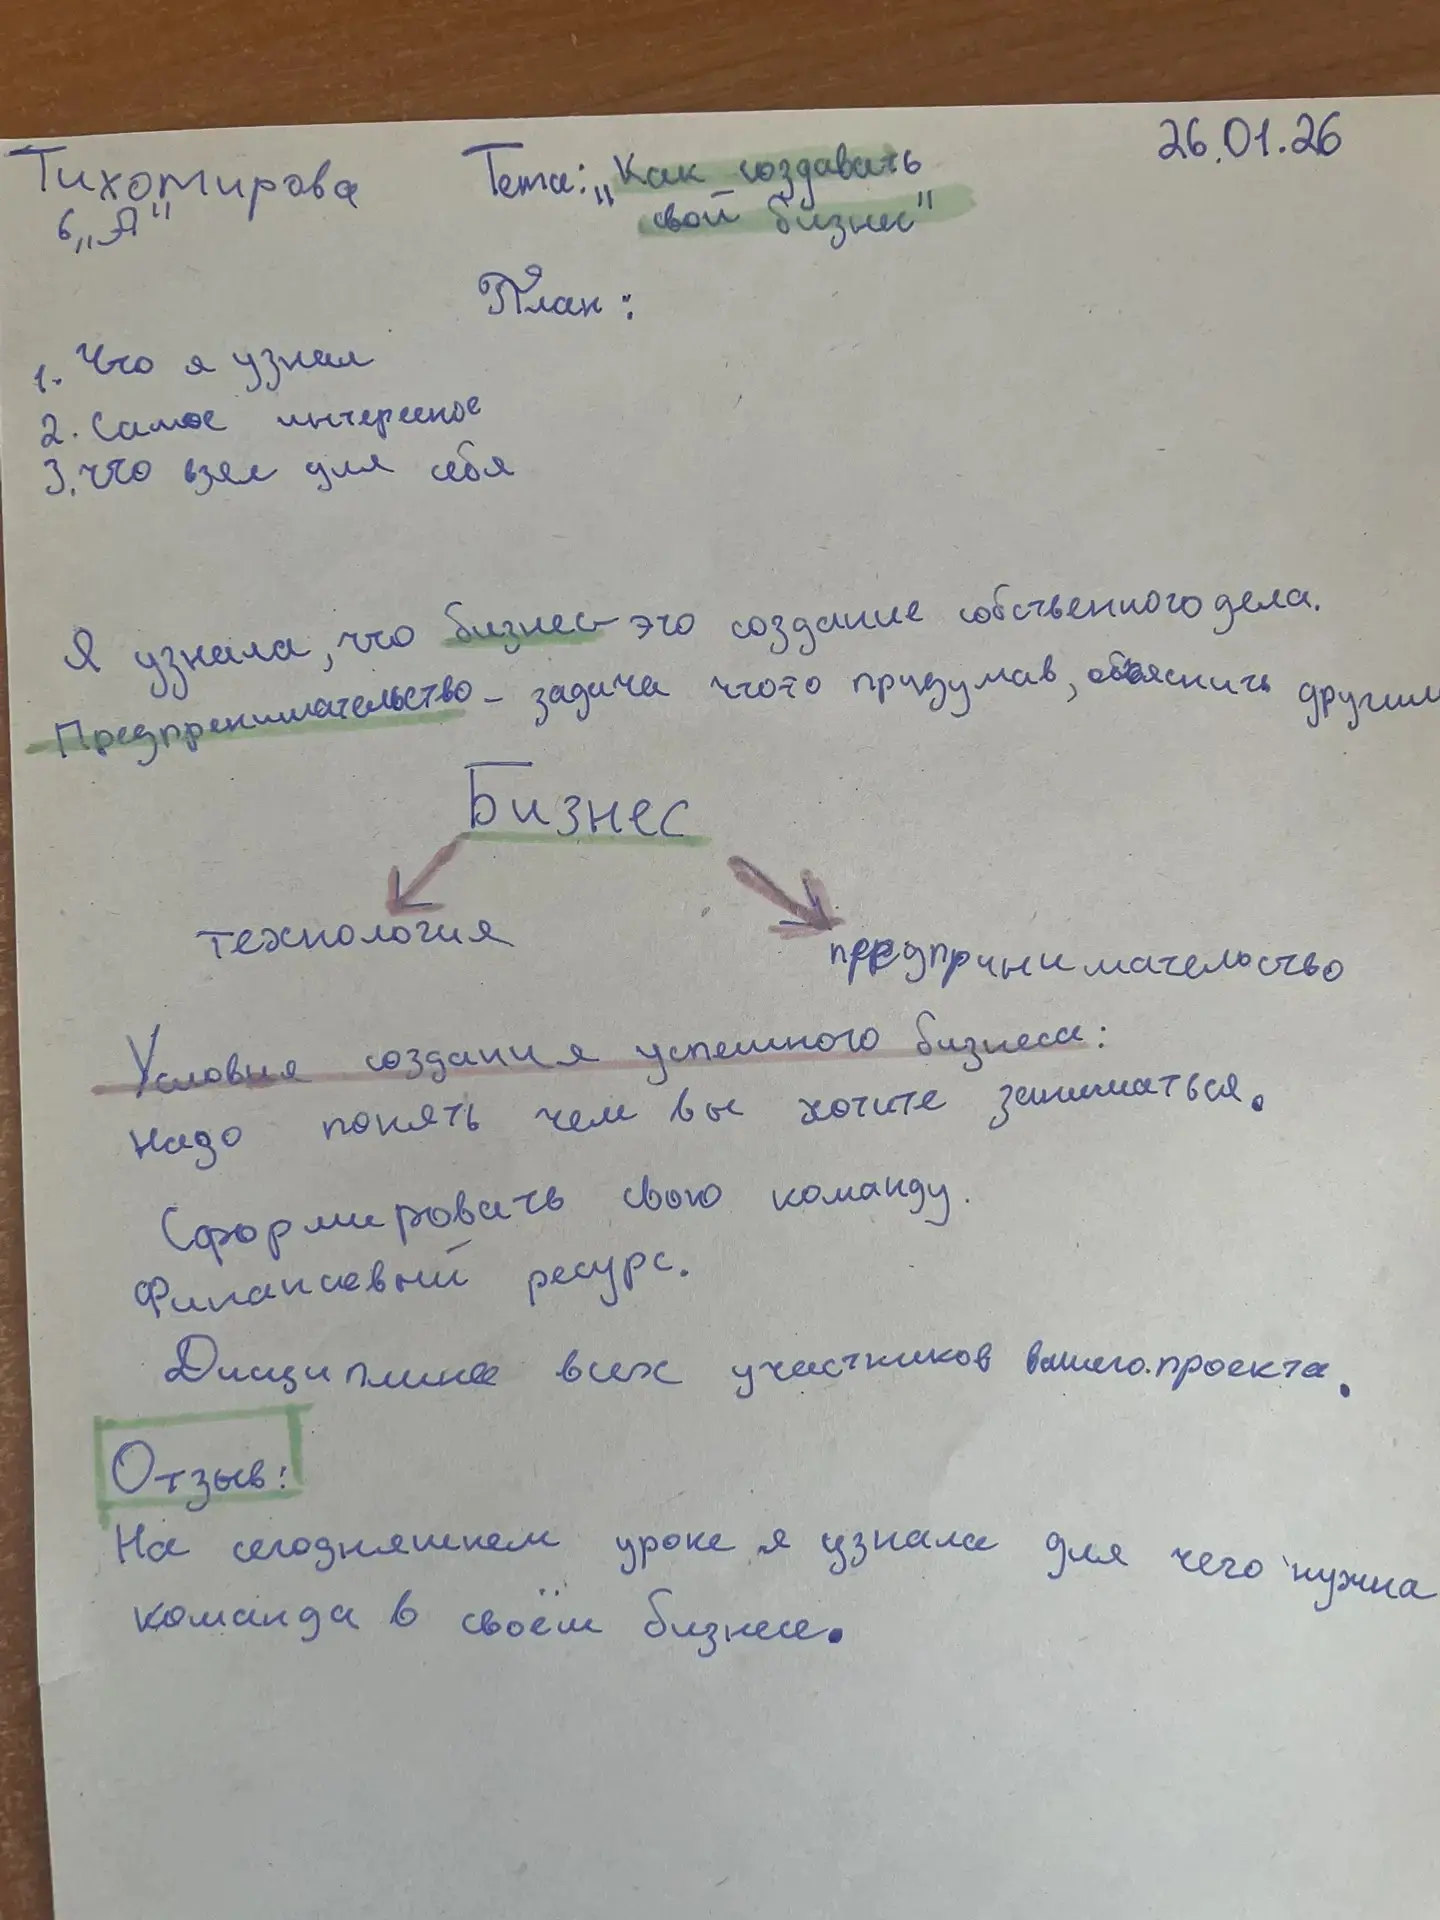 Тихомирова
6 „А"
Тема: „Как создавать
свой бизнес"
26.01.26
План:
1. Что я узнал
2. Самое интересное
3. Что взял для себя
Я узнала, что бизнес - это создание собственного дела.
Предпренимательство - задача чтото придумав, объяснить другим
Бизнес
технология
предпринимательство
Условия создания успешного бизнеса:
надо понять чем вы хотите заниматься.
Сформировать свою команду.
Финансовый ресурс.
Дисциплина всех участников вашего проекта.
Отзыв:
На сегодняшнем уроке я узнала для чего нужна
команда в своём бизнесе.